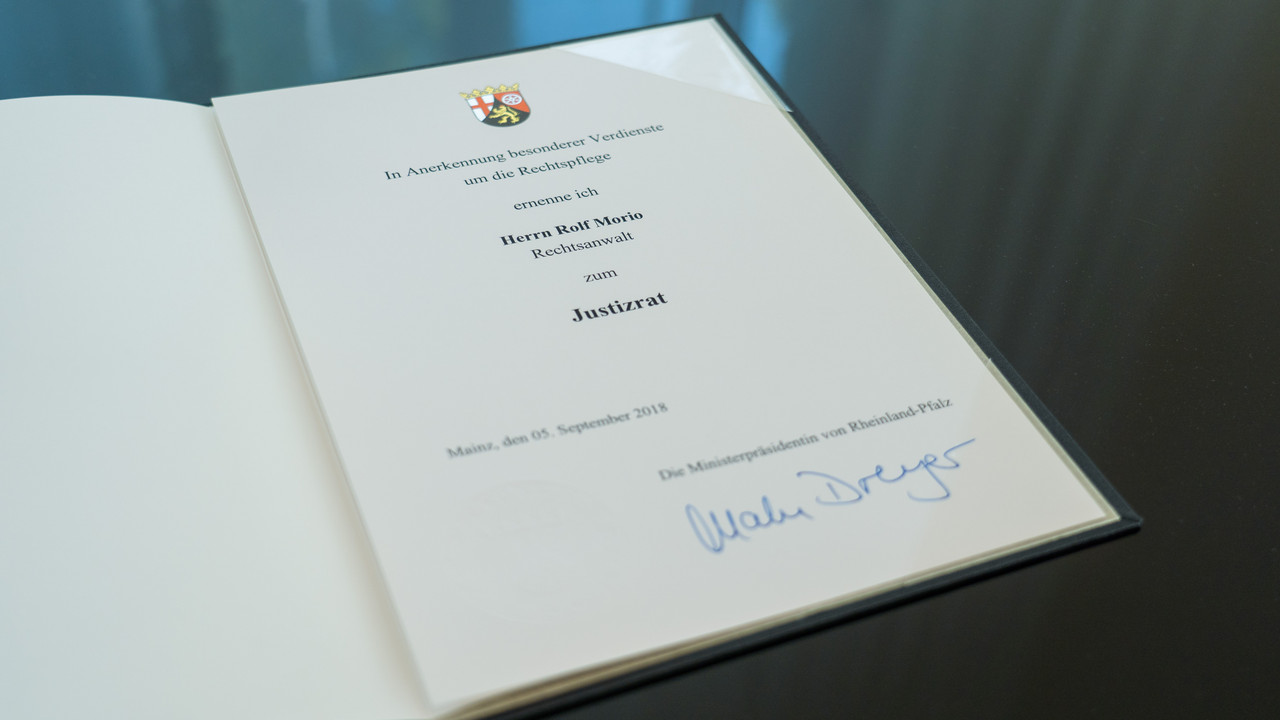 In Anerkennung besonderer Verdienste
um die Rechtspflege
ernenne ich
Herrn Rolf Morio
Rechtsanwalt
zum
Justizrat
Mainz, den 05. September 2018
Die Ministerpräsidentin von Rheinland-Pfalz
Malu Dreyer